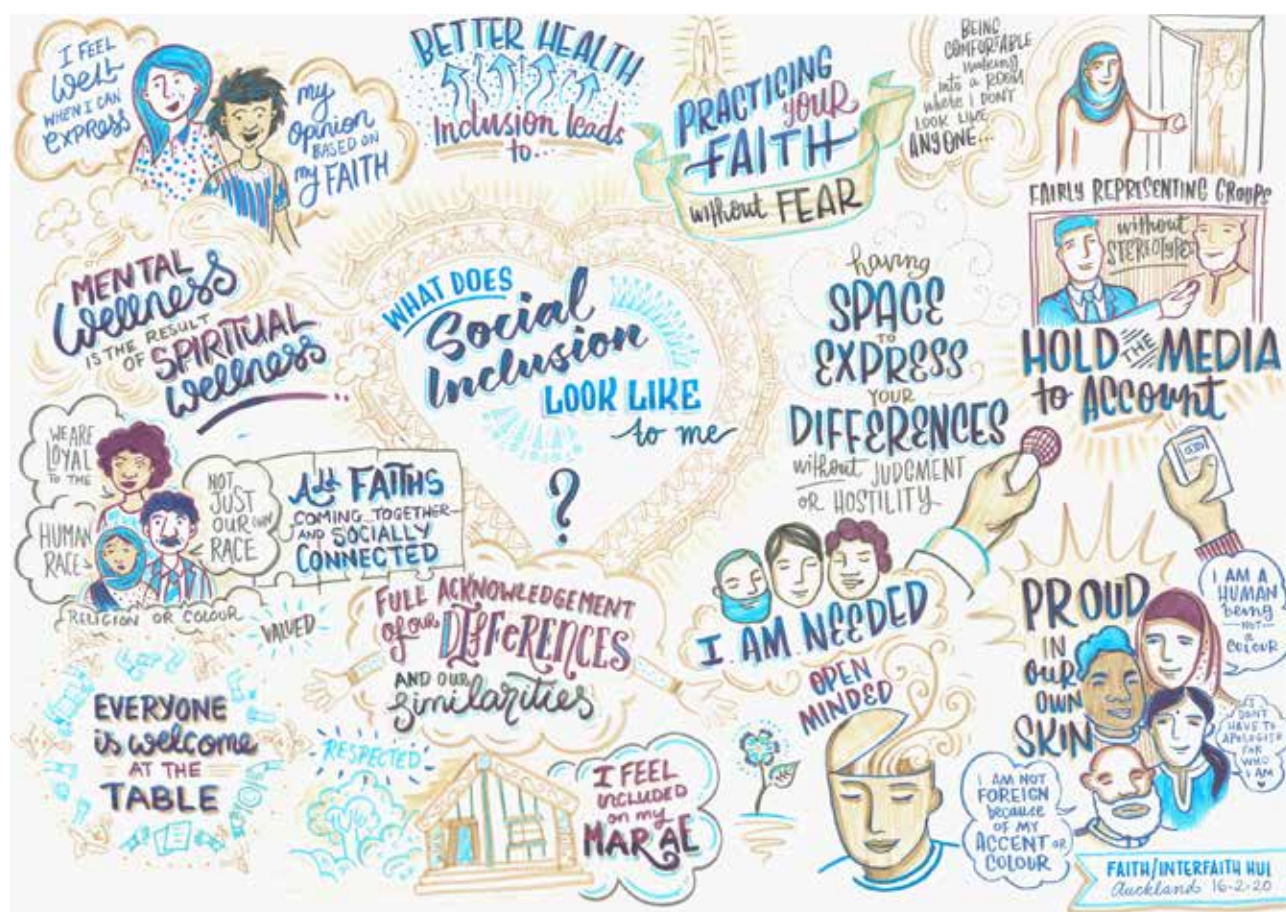 I FEEL
well
WHEN I CAN
EXPRESS
my
Opinion
BASED ON
my FAITH
BETTER HEALTH
Inclusion leads
to...
PRACTICING
your
FAITH
without FEAR
BEING
COMFORTABLE
walking
into a ROOM
where I DON'T
LOOK LIKE
ANYONE...
FAIRLY REPRESENTING GROUPS
without
STEREOTYPES
HOLD THE MEDIA
to ACCOUNT
MENTAL
Wellness
IS THE RESULT
OF SPIRITUAL
wellness
WHAT DOES
Social
Inclusion
LOOK LIKE
to me
?
having
SPACE
TO
EXPRESS
YOUR
DIFFERENCES
without JUDGMENT
OR HOSTILITY
WE ARE
LOYAL
TO THE
HUMAN
RACE
NOT
JUST
OUR OWN
RACE
RELIGION OR COLOUR
All FAITHS
COMING TOGETHER
AND SOCIALLY
CONNECTED
VALUED
FULL ACKNOWLEDGEMENT
of our DIFFERENCES
AND OUR
Similarities
I AM NEEDED
OPEN
MINDED
PROUD
IN
OUR
OWN
SKIN
I AM A
HUMAN
being
NOT
a
COLOUR
I DON'T
HAVE TO
APOLOGISE
FOR
WHO
I AM
EVERYONE
is welcome
AT THE
TABLE
RESPECTED
I FEEL
INCLUDED
on my
MARAE
I AM NOT
FOREIGN
because
OF MY
ACCENT OR
COLOUR
FAITH/INTERFAITH HUI
Auckland 16-2-20